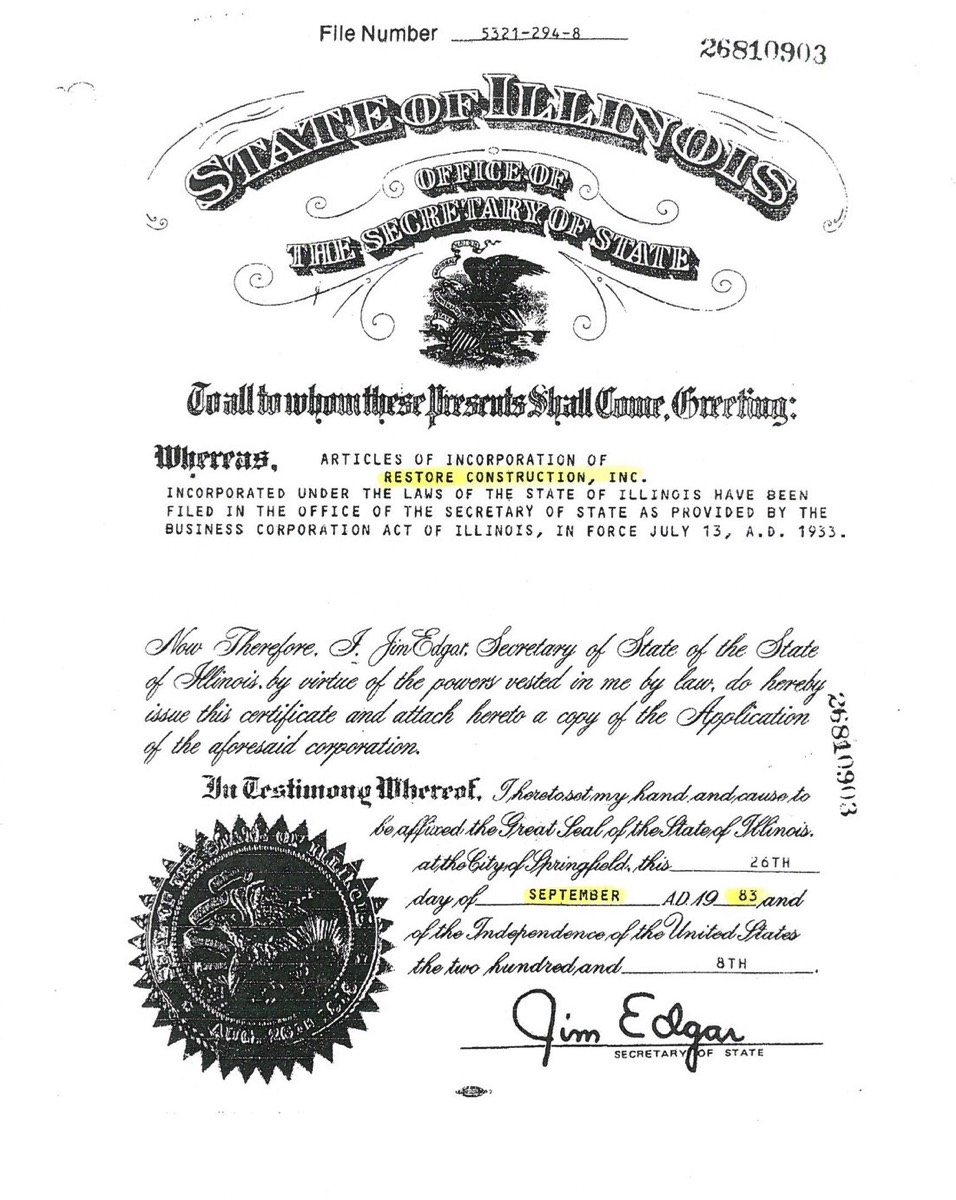 File Number 5321-294-8
26810903
STATE OF ILLINOIS
OFFICE OF
THE SECRETARY OF STATE
To all to whom these Presents Shall Come, Greeting:
Whereas, ARTICLES OF INCORPORATION OF
RESTORE CONSTRUCTION, INC.
INCORPORATED UNDER THE LAWS OF THE STATE OF ILLINOIS HAVE BEEN
FILED IN THE OFFICE OF THE SECRETARY OF STATE AS PROVIDED BY THE
BUSINESS CORPORATION ACT OF ILLINOIS, IN FORCE JULY 13, A.D. 1933.
Now Therefore, I, Jim Edgar, Secretary of State of the State
of Illinois, by virtue of the powers vested in me by law, do hereby
issue this certificate and attach hereto a copy of the Application
of the aforesaid corporation.
26810903
In Testimony Whereof, I hereto set my hand and cause to
be affixed the Great Seal of the State of Illinois,
at the City of Springfield, this 26TH
day of SEPTEMBER A.D. 19 83 and
of the Independence of the United States
the two hundred and 8TH.
AUG. 26TH
Jim Edgar
SECRETARY OF STATE